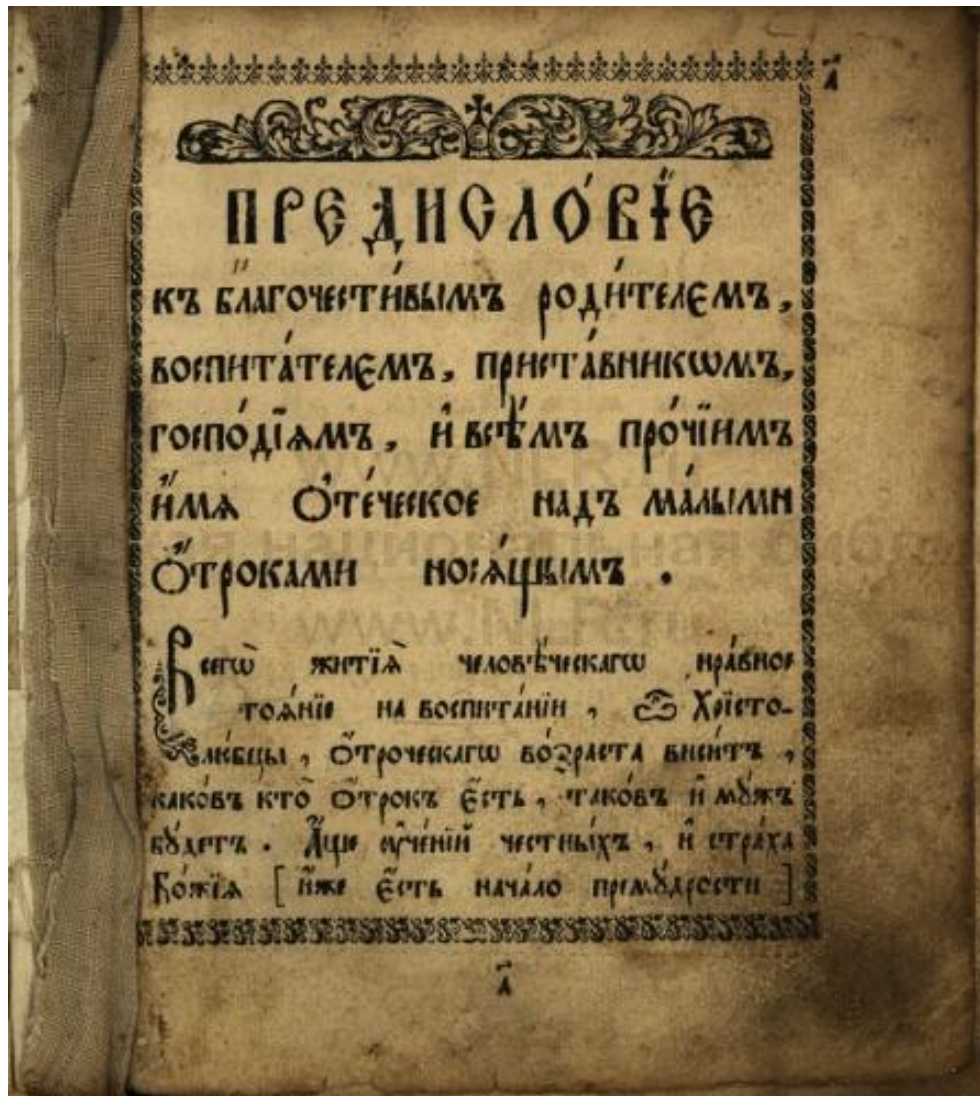 а҃
ПРЕДИСЛО́ВЇЕ
къ благочести́вымъ роди́телємъ,
воспита́телємъ, приста́вникѡмъ,
господі́ямъ, и҆ всѣ́мъ про́чїимъ
и҆́мѧ Ѻ҆те́ческое надъ ма́лыми
Ѻ҆́троками носѧ́щымъ .
Всегѡ̀ житїѧ̀ человѣ́ческагѡ нра́вное
тоѧ́нїе на воспита́нїи , ѽ Хрїсто-
лю́бцы , Ѻ҆́троческагѡ во́зраста виси́тъ ,
како́въ кто̀ Ѻ҆́трокъ є҆́сть , тако́въ и҆ мꙋ́жъ
бꙋ́детъ . А҆́ще ᲂу҆че́нїй честны́хъ , и҆ стра́ха
Бо́жїѧ [ и҆́же є҆́сть нача́ло премꙋ́дрости ]
а҃
www.NLR.ru
www.NLR.ru